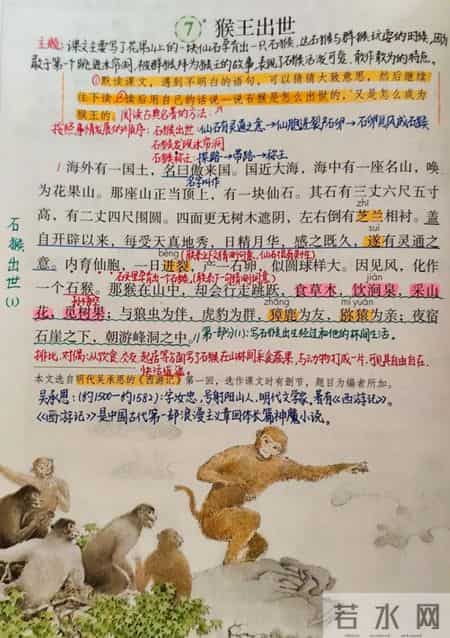 7* 猴王出世
主题:课文主要写了花果山上的一块仙石孕育出一只石猴,这石猴与群猴玩耍的时候,因
敢于第一个跳进水帘洞,被群猴拜为猴王的故事,表现了石猴活泼可爱、敢作敢为的特点。
①默读课文,遇到不明白的语句,可以猜猜大致意思,然后继续
往下读。②读后用自己的话说一说石猴是怎么出世的,又是怎么成为
猴王的。阅读古典名著的方法
按照事情发展的顺序:石猴出世 仙石有灵通之意→仙胞迸裂产石卵→石卵见风成石猴
石猴发现水帘洞
石猴称王:探路→带路→称王
1 海外有一国土,名曰傲来国。国近大海,海中有一座名山,唤
名字叫作
为花果山。那座山正当顶上,有一块仙石。其石有三丈六尺五寸
zhī
高,有二丈四尺围圆。四面更无树木遮阴,左右倒有芝兰相衬。盖
suì
自开辟以来,每受天真地秀,日精月华,感之既久,遂有灵通之
意。内育仙胞,一日迸裂,产一石卵,似圆球样大。因见风,化作
jiàn
一个石猴。那猴在山中,却会行走跳跃,食草木,饮涧泉,采山
孙悟空
zhāng
mí yuán
花,觅树果;与狼虫为伴,虎豹为群,獐鹿为友,猕猿为亲;夜宿
石崖之下,朝游峰洞之中。
第一部分(1):写石猴出生经过和他的林间生活。
石猴出世(1)
排比、对偶:从饮食、交友、起居等方面写了石猴在山林间采食蔬果,与动物打成一片,可见其自由自在、
快活逍遥
本文选自明代吴承恩的《西游记》第一回,选作课文时有删节,题目为编者所加。
吴承恩:(约1500—约1582):字汝忠,号射阳山人,明代文学家,著有《西游记》。
《西游记》是中国古代第一部浪漫主义章回体长篇神魔小说。
若水网